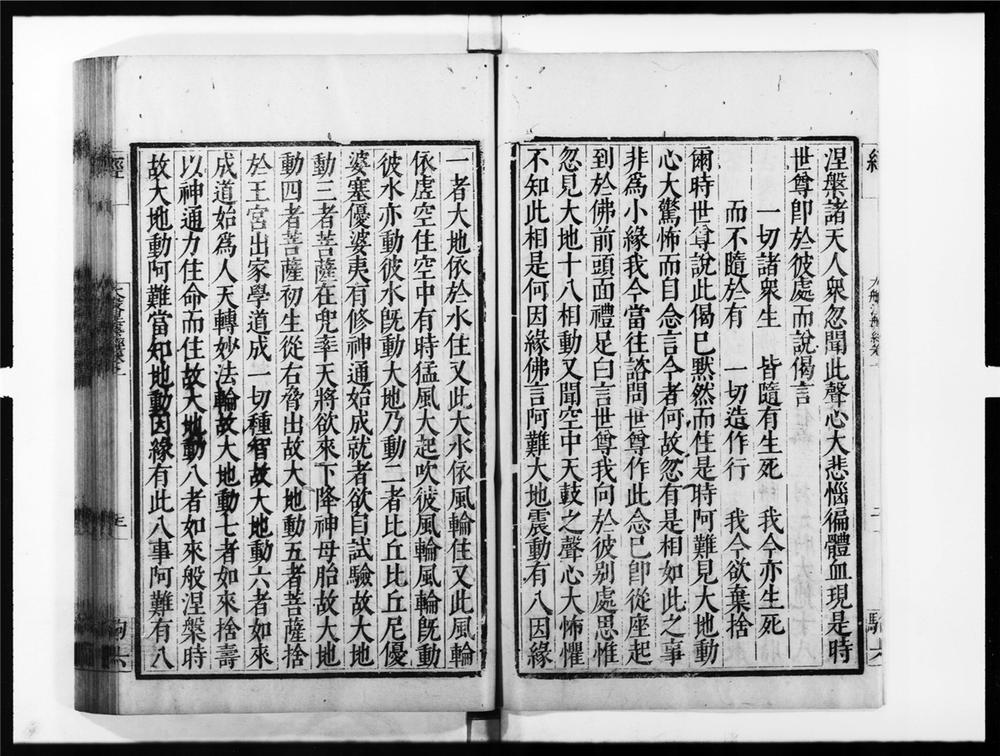 涅槃諸天人衆忽聞此聲心大悲惱徧體血現是時
世尊卽於彼處而說偈言
一切諸衆生　皆隨有生死　我今亦生死
而不隨於有　一切造作行　我今欲棄捨
爾時世尊說此偈已黙然而住是時阿難見大地動
心大驚怖而自念言今者何故忽有是相如此之事
非爲小緣我今當往諮問世尊作此念已卽從座起
到於佛前頭面禮足白言世尊我向於彼别處思惟
忽見大地十八相動又聞空中天鼓之聲心大怖懼
不知此相是何因緣佛言阿難大地震動有八因緣
一者大地依於水住又此大水依風輪住又此風輪
依虛空住空中有時猛風大起吹彼風輪風輪旣動
彼水亦動彼水旣動大地乃動二者比丘比丘尼優
婆塞優婆夷有修神通始成就者欲自試驗故大地
動三者菩薩在兜率天將欲來下降神母胎故大地
動四者菩薩初生從右脅出故大地動五者菩薩捨
於王宮出家學道成一切種智故大地動六者如來
成道始爲人天轉妙法輪故大地動七者如來捨壽
以神通力住命而住故大地動八者如來般涅槃時
故大地動阿難當知地動因緣有此八事阿難有八
經